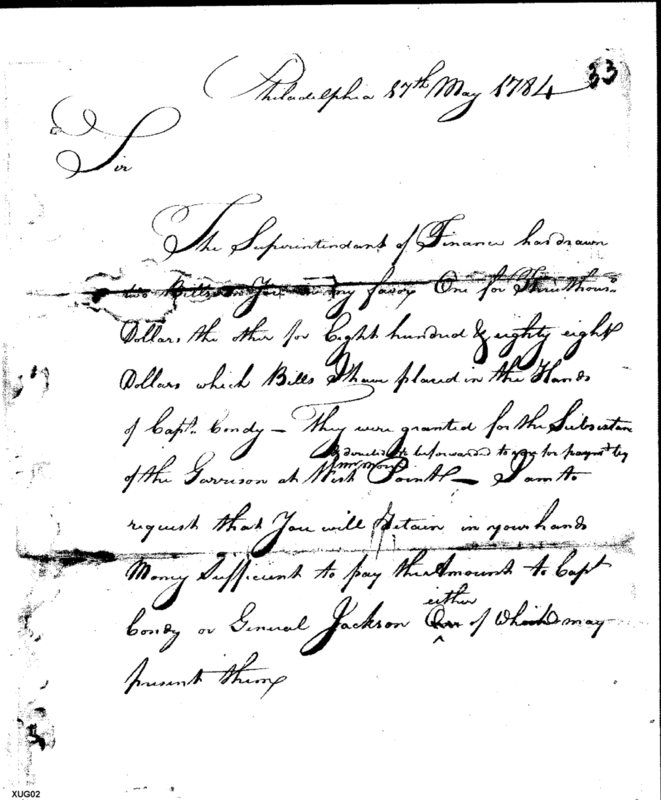 33
Philadelphia 17th May 1784
Sir
The Superintendant of Finance has drawn
two Bills on You in my favor One for Three thous.
Dollars the other for Eight hundred & eighty eight
Dollars which Bills I have placed in the Hands
of Capt. Condy — They were granted for the Subsistance
& directed to be forwarded to you for paymt by
of the Garrison at West Point — I am to
request that You will Retain in your hands
Money Sufficient to pay the Amount to Capt
either
Condy or General Jackson of Which may
present them
XUG02